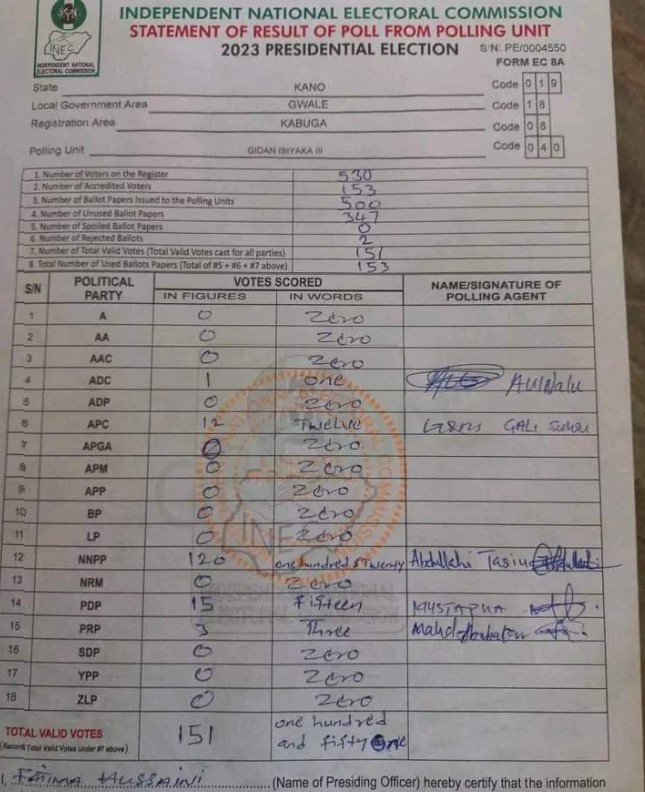 INDEPENDENT NATIONAL ELECTORAL COMMISSION
STATEMENT OF RESULT OF POLL FROM POLLING UNIT
2023 PRESIDENTIAL ELECTION S/N: PE/0004550
FORM EC 8A
INEC
INDEPENDENT NATIONAL
ELECTORAL COMMISSION
State KANO Code 0 1 9
Local Government Area GWALE Code 1 8
Registration Area KABUGA Code 0 8
Polling Unit GIDAN ISIYAKA III Code 0 4 0
1. Number of Voters on the Register 530
2. Number of Accredited Voters 153
3. Number of Ballot Papers Issued to the Polling Units 500
4. Number of Unused Ballot Papers 347
5. Number of Spoiled Ballot Papers 0
6. Number of Rejected Ballots 2
7. Number of Total Valid Votes (Total Valid Votes cast for all parties) 151
8. Total Number of Used Ballots Papers (Total of #5 + #6 + #7 above) 153
S/N POLITICAL PARTY VOTES SCORED NAME/SIGNATURE OF POLLING AGENT
IN FIGURES IN WORDS
1 A 0 Zero
2 AA 0 Zero
3 AAC 0 Zero
4 ADC 1 one
5 ADP 0 Zero
6 APC 12 Twelve
7 APGA 0 Zero
8 APM 0 Zero
9 APP 0 Zero
10 BP 0 Zero
11 LP 0 Zero
12 NNPP 120 one hundred & Twenty Abdullahi
13 NRM 0 Zero
14 PDP 15 Fifteen MUSTAPHA
15 PRP 3 Three
16 SDP 0 Zero
17 YPP 0 Zero
18 ZLP 0 Zero
TOTAL VALID VOTES 151 one hundred
(Record Total Valid Votes under #7 above) and fifty one
I, HUSSAINI (Name of Presiding Officer) hereby certify that the information